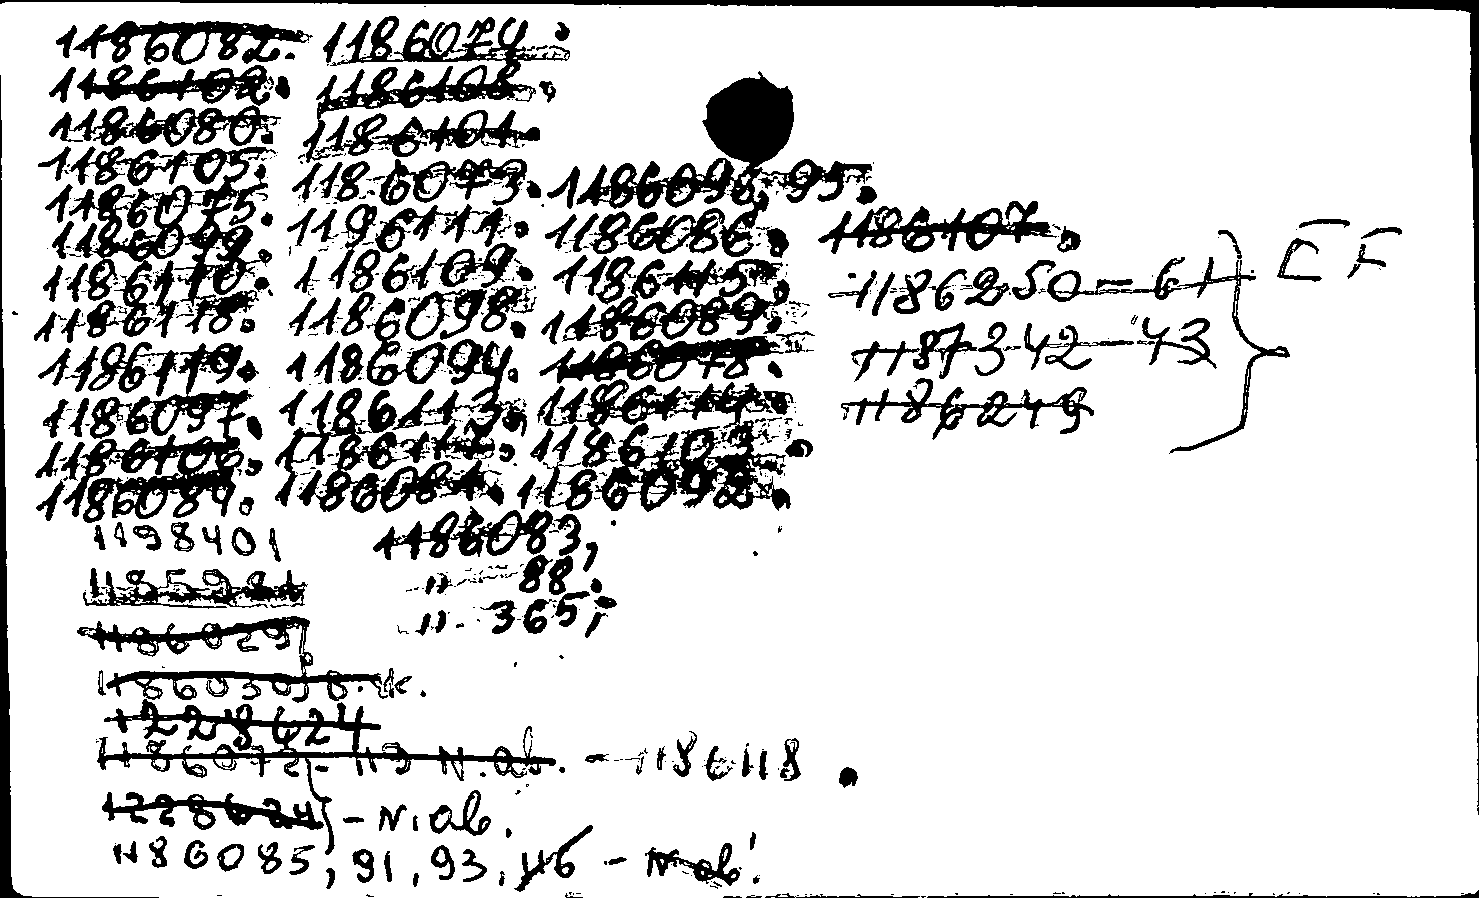 1186082. 1186074.
1186102. 1186108.
1186080. 1186101.
1186105. 1186073. 1186096, 95.
1186075. 1196111. 1186086. 1186107.
1186099. 1186109. 1186115. 1186250-61 EF
1186110. 1186098. 1186089.
1186118. 1186094. 1186078. 1187342-43
1186119. 1186113. 1186114. 1186249
1186097. 1186117. 1186103.
1186106. 1186081. 1186092.
1186084.
1198401 1186083,
1185981 " 88.
1186029. " 365;
1186030
1228624
1186072 - 119 N. ab. - 1186118.
1228624 - N. ab.
1186085, 91, 93, 116 - N ab.